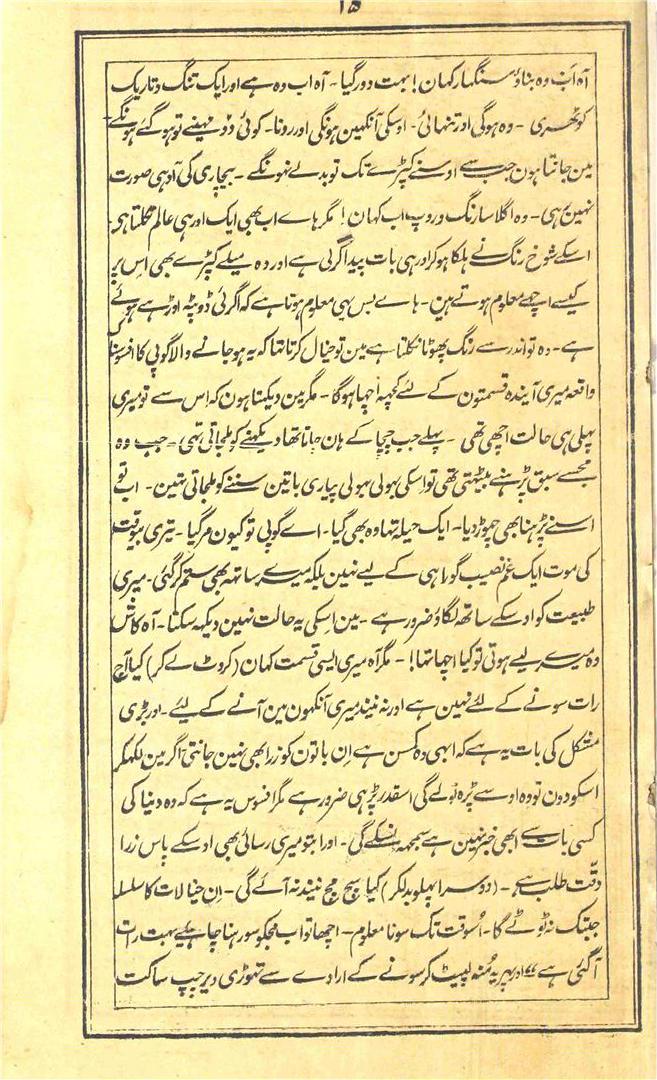 ۱۵
آہ اَب وہ بناؤ سنگہار کہان! بہت دور گیا ۔ آہ اب وہ ہے اور ایک تنگ و تاریک
کوٹھری ۔ وہ ہوگی اور تنہائی ۔ اوسکی آنکھین ہونگی اور رونا ۔ کوئی دو مہینے تو ہو گئے ہونگے
مین جانتا ہون جب سے اوسنے کپڑے تک تو بدلے نہونگے ۔ بیچاری کی آدہی صورت
نہین رہی ۔ وہ اگلا سا رنگ و روپ اب کہان! مگر ہاے اب بھی ایک اور ہی عالم نکلتا ہے
اسکے شوخ رنگ نے ہلکا ہوکر اور ہی بات پیدا کرلی ہے اور وہ میلے کپڑے بھی اِس پر
کیسے اچھے معلوم ہوتے ہین ۔ ہاے بس یہی معلوم ہوتا ہے کہ اگرئی ڈوپٹہ اوڑہے ہوئے
ہے ۔ وہ تو اندر سے رنگ پھوٹا نکلتا ہے مین تو خیال کرتا تھا کہ یہ ہو جانے والا گوپی کا افسوسناک
واقعہ میری آیندہ قسمتون کے لئے کچہہ اچہا ہوگا ۔ مگر مین دیکہتا ہون کہ اِس سے تو میری
پہلی ہی حالت اچھی تھی ۔ پہلے جب چچا کے ہان جاتا تھا دیکھنے کو ملجاتی تہی ۔ جب وہ
مجھسے سبق پڑہنے بیٹہتی تھی تو اِسکی بہولی بہولی پیاری باتین سننے کو ملجاتی تہین ۔ اب تو
اسنے پڑہنا بھی چہوڑ دیا ۔ ایک حیلہ تہا وہ بھی گیا ۔ اے گوپی تو کیون مر گیا ۔ تیری بیوقت
کی موت ایک غم نصیب گورا ہی کے لیے نہین بلکہ میرے ساتہہ بھی ستم کر گئی ۔ میری
طبیعت کو اوسکے ساتھ لگاؤ ضرور ہے ۔ مین اِسکی یہ حالت نہین دیکہہ سکتا ۔ آہ کاش
وہ میرے لیے ہوتی تو کیا اچہا تہا! ۔ مگر آہ میری ایسی قسمت کہان (کروٹ لے کر) کیا آج
رات سونے کے لئے نہین ہے اور نہ نیند میری آنکھون مین آنے کے لیئے ۔ اور بڑی
مشکل کی بات یہ ہے کہ ابھی وہ کمسن ہے اِن باتون کو زرا بھی نہین جانتی اگر مین لکھکر
اسکو دون تو وہ اوسے پڑہ تو لے گی اسقدر پڑہی ضرور ہے مگر افسوس یہ ہے کہ وہ دنیا کی
کسی بات سے ابھی خبر نہین ہے سمجہہ نسکے گی ۔ اور ابتو میری رسائی بھی اوسکے پاس زرا
دقّت طلب ہے ۔ (دوسرا پہلو بدلکر) کیا سچ مچ نیند نہ آئے گی ۔ اِن خیالات کا سلسلہ
جبتک نہ ٹوٹے گا ۔ اُسوقت تک سونا معلوم ۔ اچھا تو اب مجکو سو رہنا چاہیے بہت رات
آگئی ہے ؍؍ اور پھر یہ مُنہ لپیٹ کر سونے کے ارادے سے تہوڑی دیر چپ ساکت